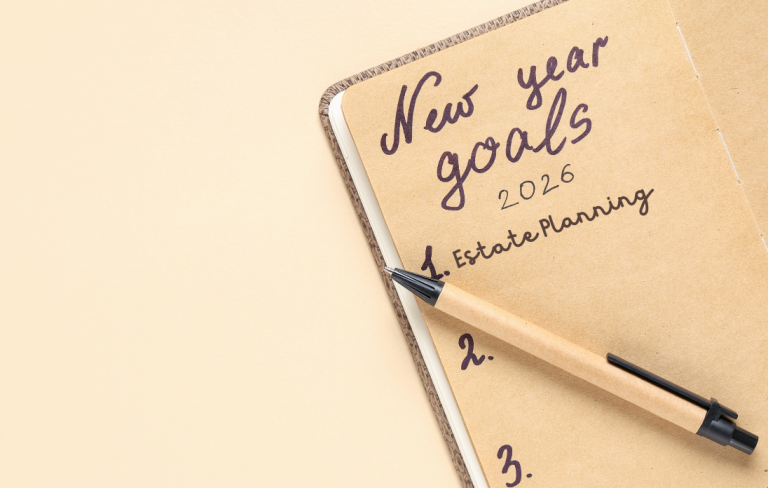 New year
goals
2026
1. Estate Planning
2.
3.